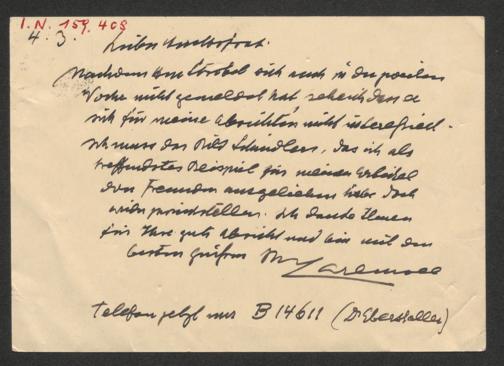 I.N. 159.408
4.3.
Lieber
Nachdem Herr Strobel sich auch in der zweiten
Woche nicht gemeldet hat, sehe ich dass er
sich für meine Absichten nicht interessiert.
Ich muss das Bild Schindlers, das ich als
treffendstes Beispiel für meinen Artikel
den Fremden ausgeliehen habe doch
wieder zurückstellen. Ich danke Ihnen
für Ihre gute Absicht und bin mit den
besten Grüßen Ihr
Telefon jetzt nur B 14611 (Dr Eberstaller)